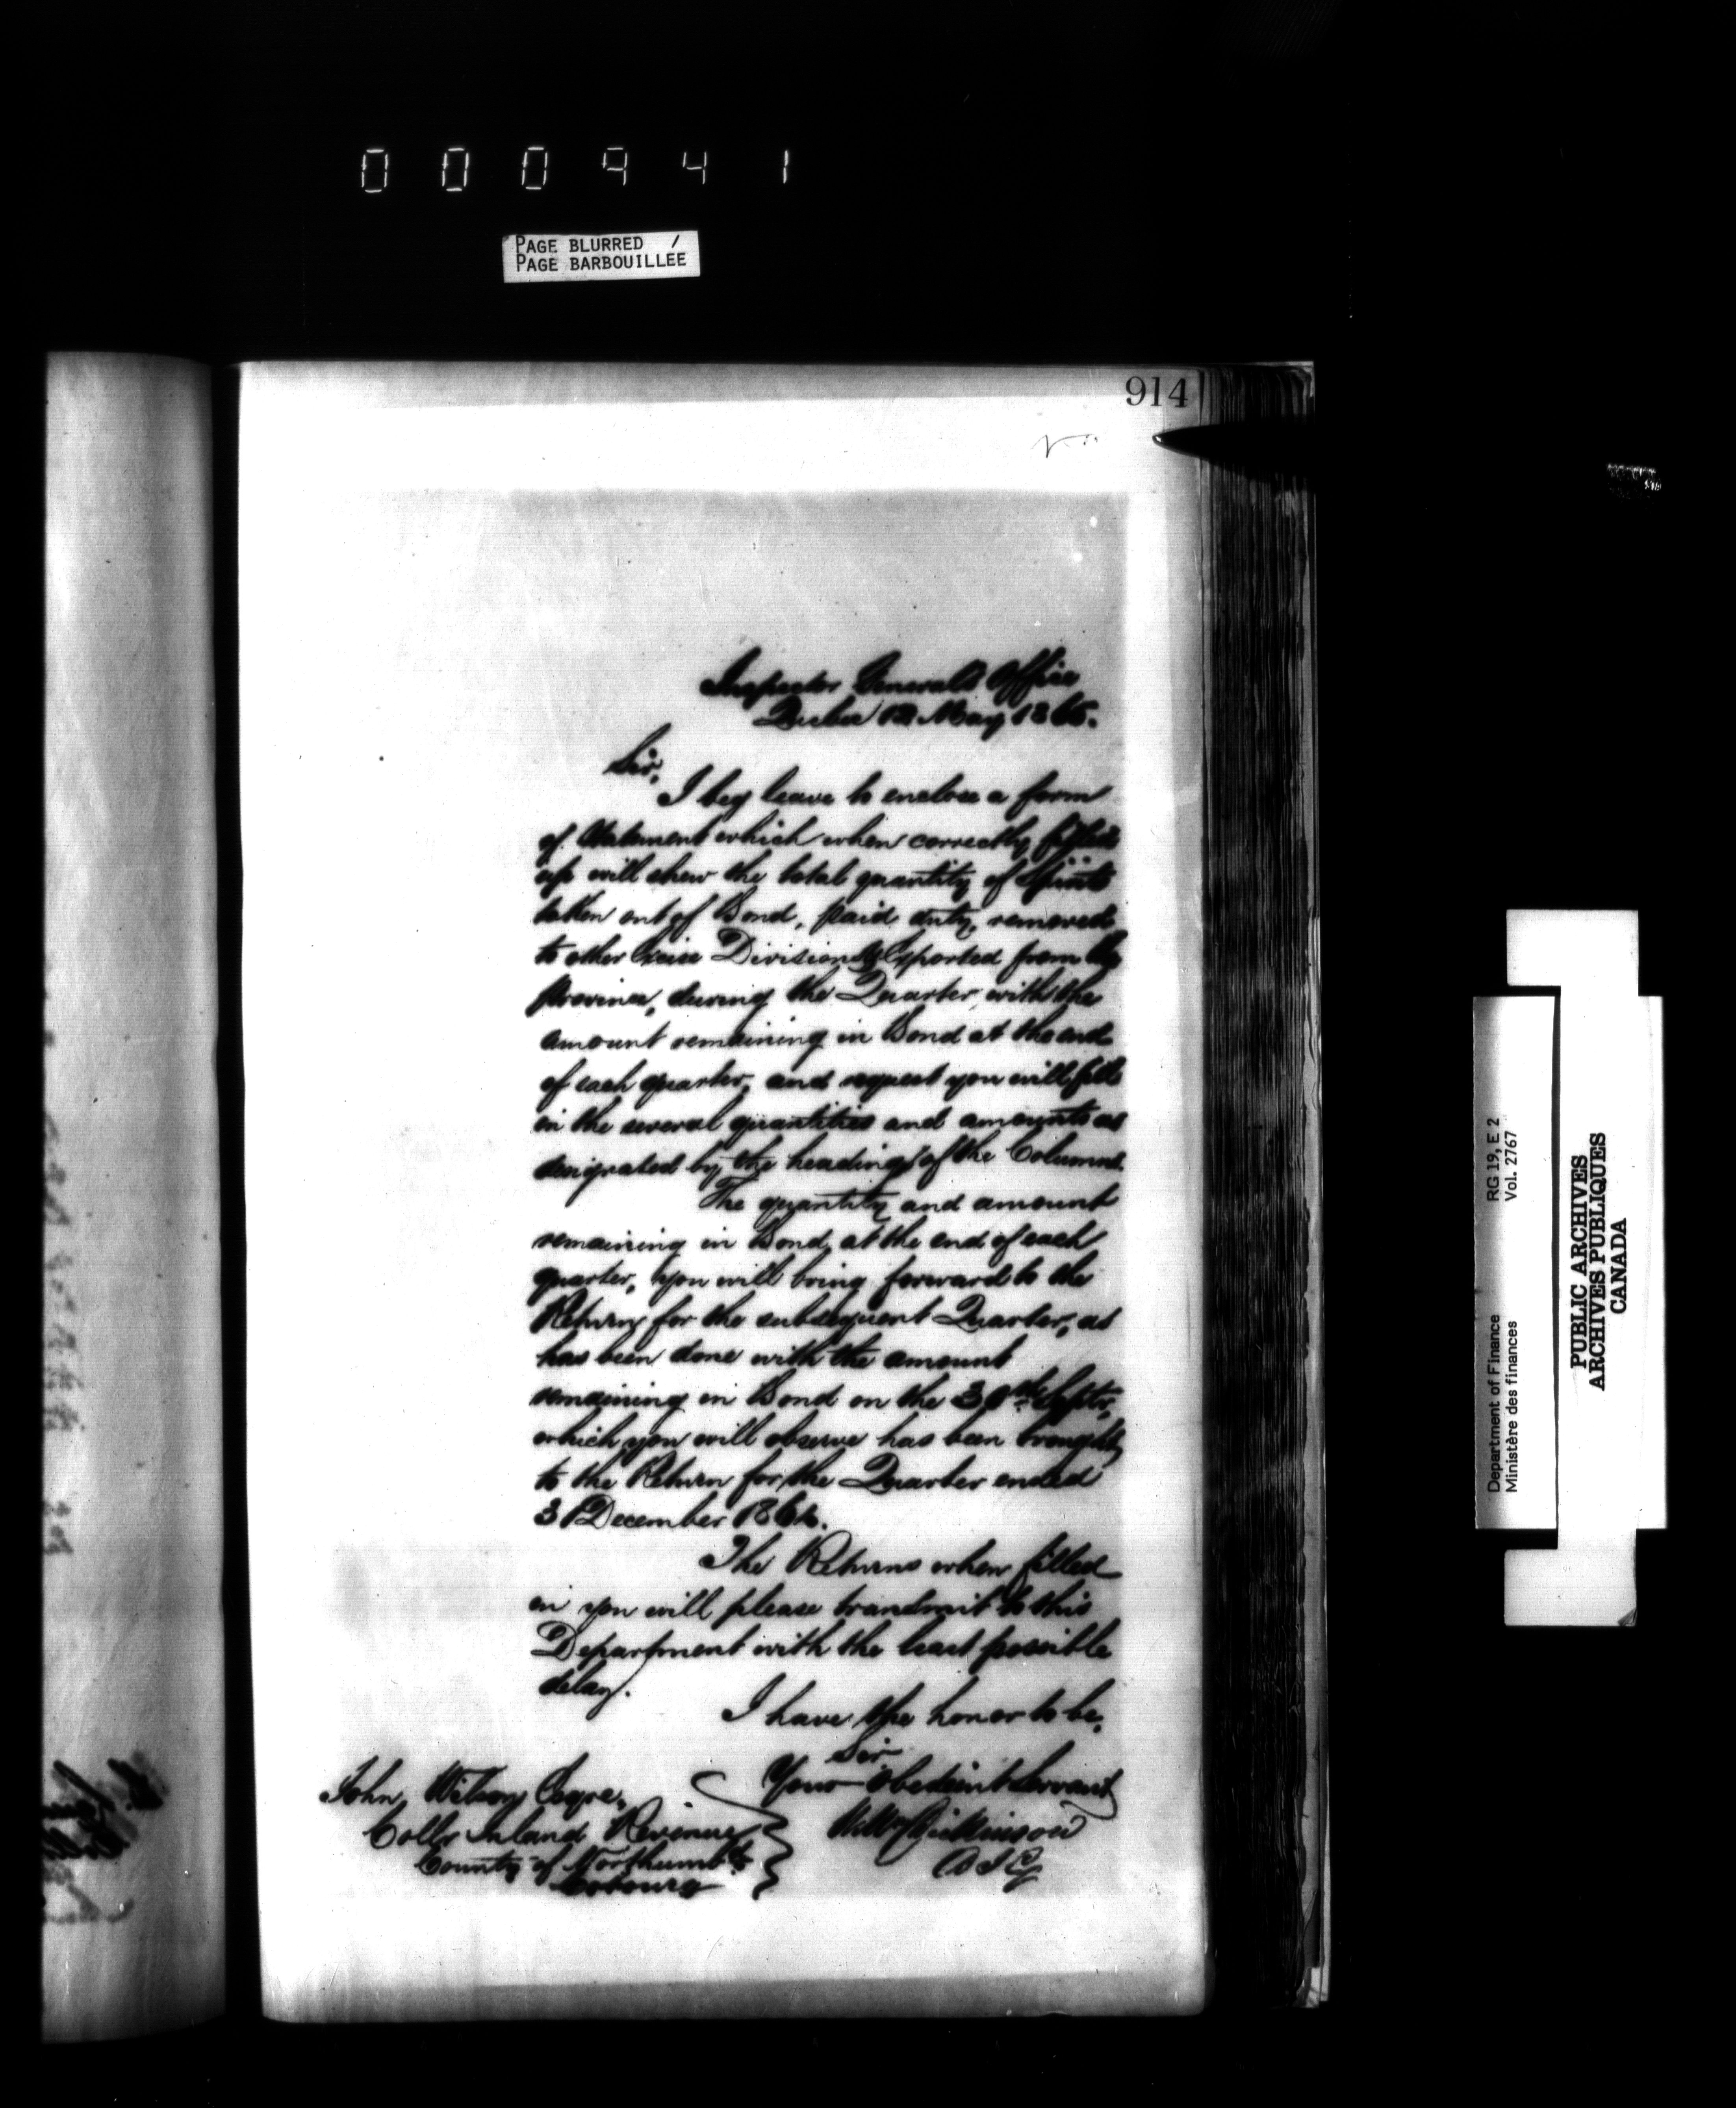 000941
PAGE BLURRED /
PAGE BARBOUILLÉE
914
Inspector Generals Office
Quebec 12 May 1865.
Sir,
I beg leave to enclose a form
of Statement which when correctly filled
up will shew the total quantity of Spirits
taken out of Bond, paid duty, removed
to other Excise Divisions, Exported from the
Province, during the Quarter, with the
amount remaining in Bond at the end
of each quarter, and request you will fill
in the several quantities and amounts as
designated by the headings of the Columns.
The quantity and amount
remaining in Bond, at the end of each
quarter, you will bring forward to the
Return for the subsequent Quarter, as
has been done with the amount
remaining in Bond on the 30th Septr,
which you will observe has been brought
to the Return for the Quarter ended
31 December 1864.
The Returns when filled
in you will please transmit to this
Department with the least possible
delay.
I have the honor to be,
Sir
Your Obedient Servant
Wm Dickinson
A I G
John Wilson Esqre,
Collr Inland Revenue
County of Northumbd
Cobourg
Department of Finance RG 19, E 2
Ministère des finances Vol. 2767
PUBLIC ARCHIVES
ARCHIVES PUBLIQUES
CANADA